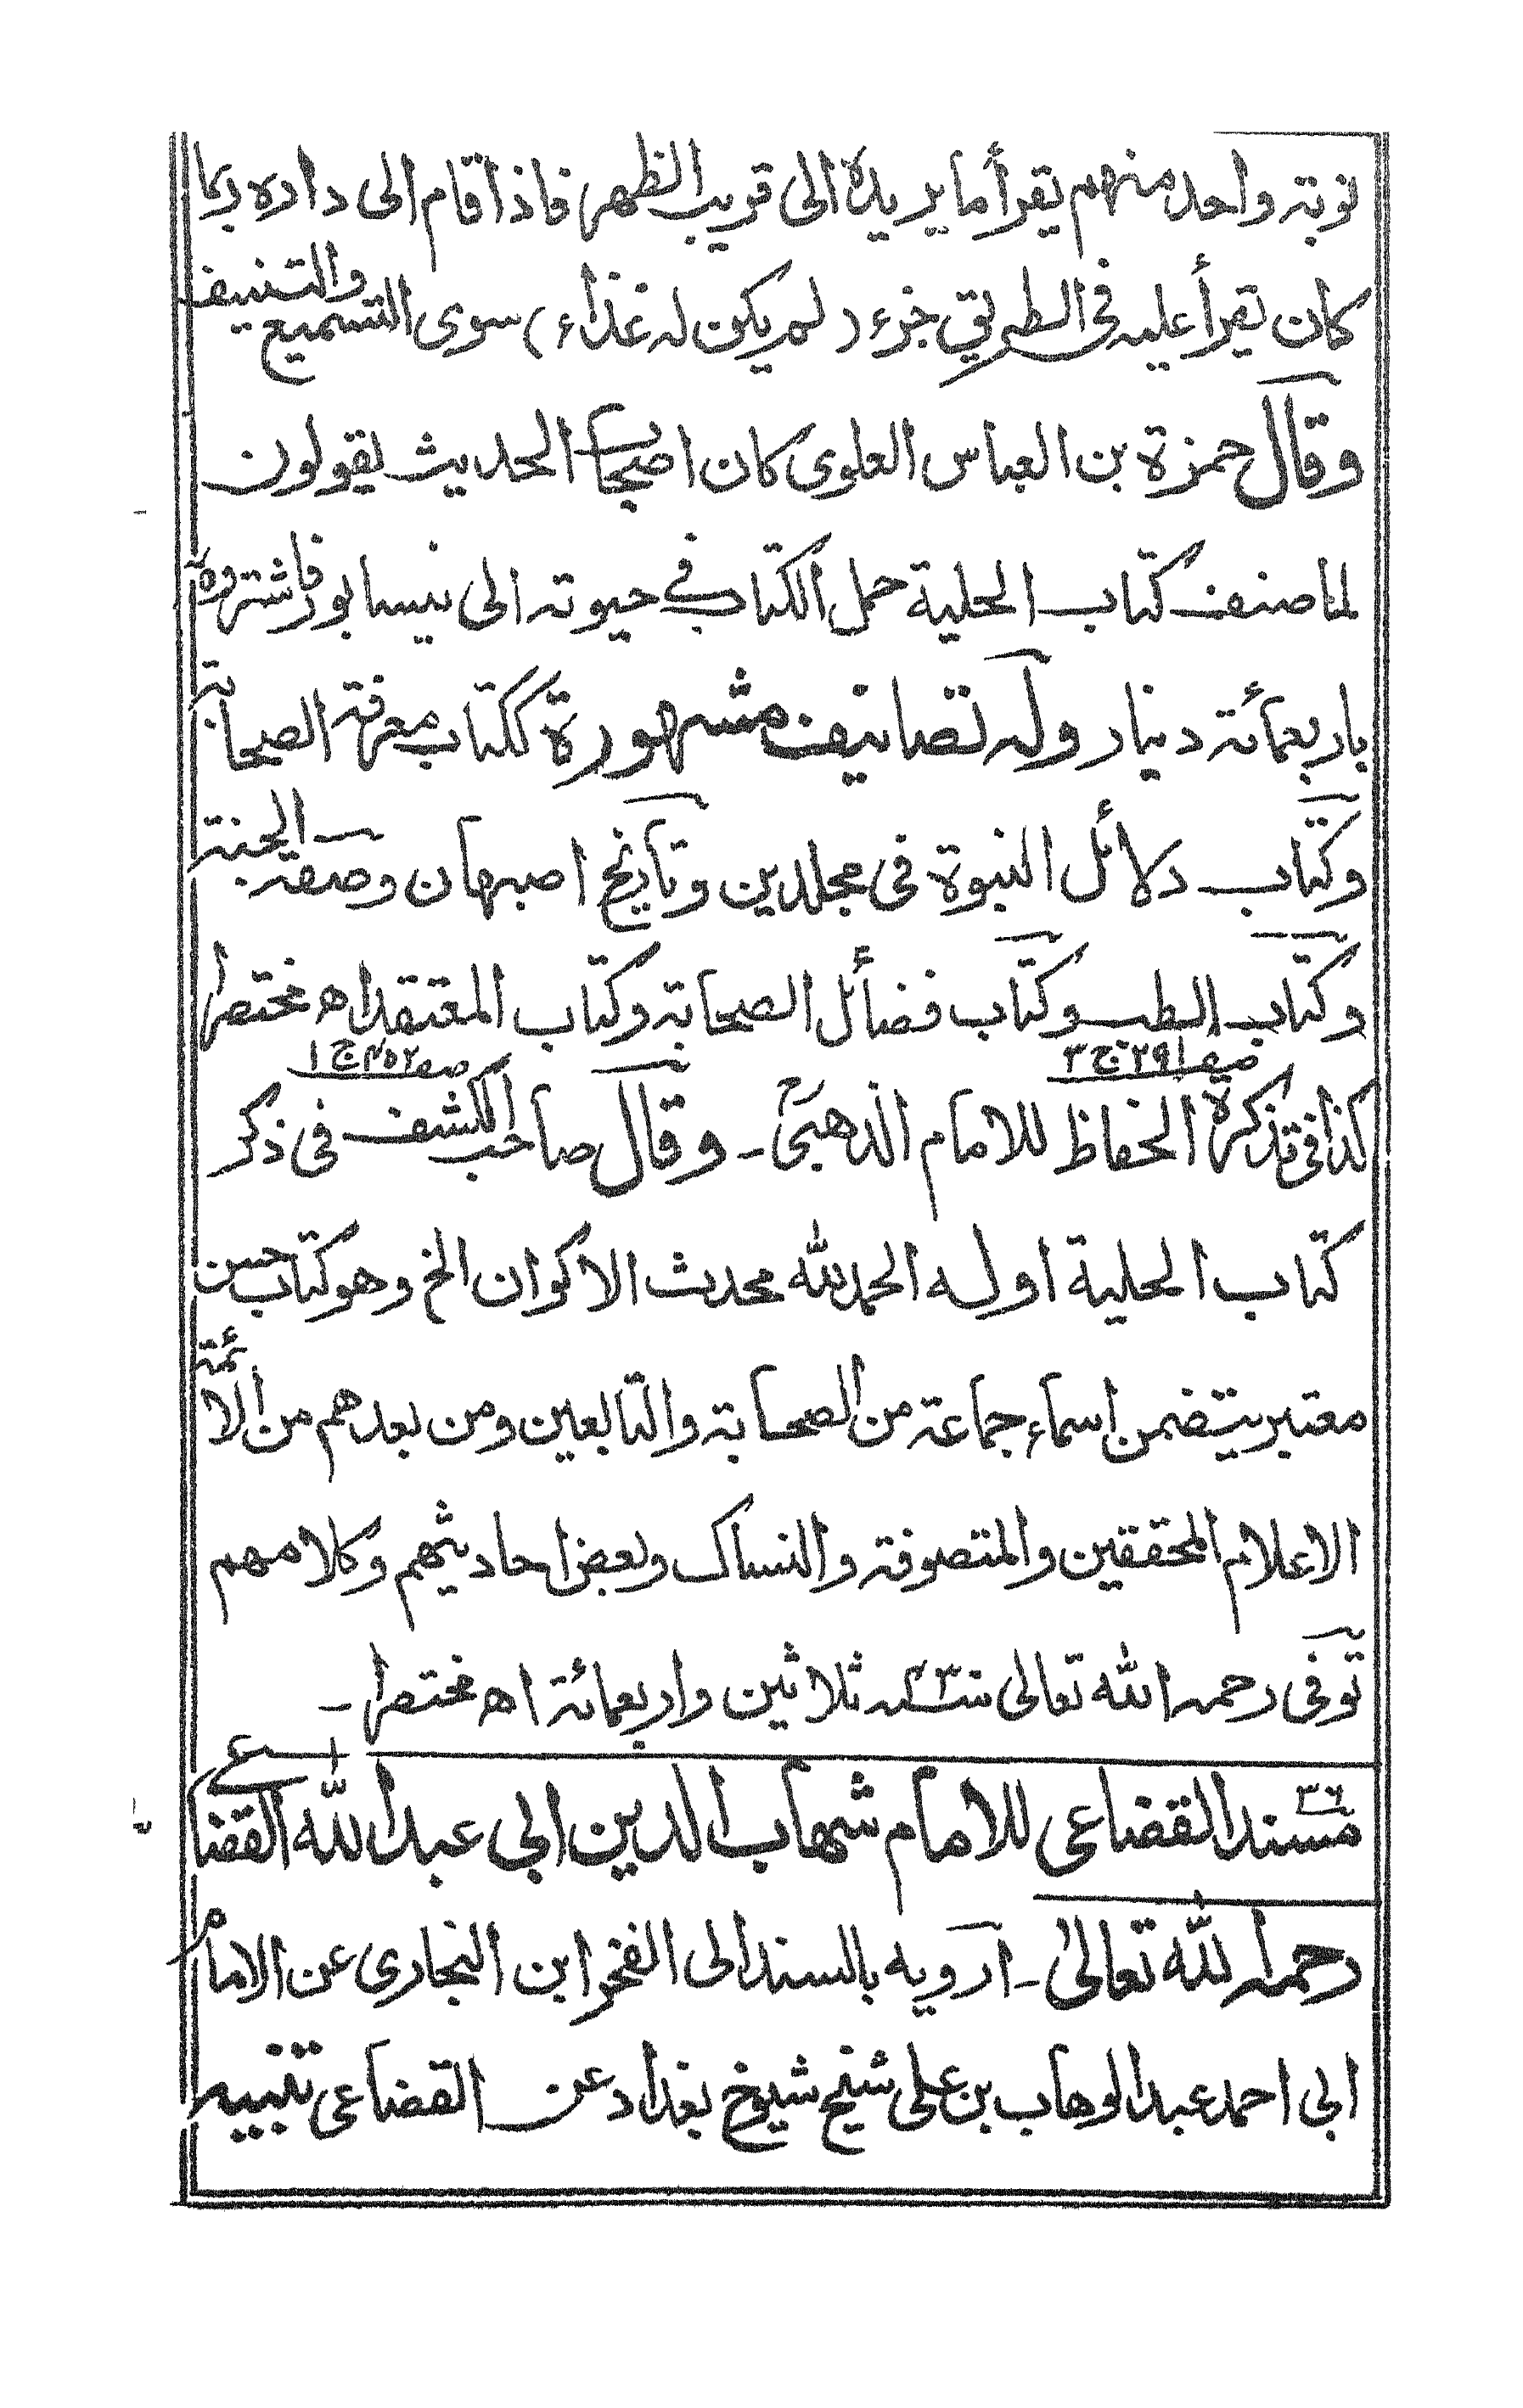 نوبته واحد منهم يقرأ ما يريده الى قريب الظهر فاذا قام الى داره ربما
كان يقرأ عليه فى الطريق جزء (لم يكن له غذاء) سوى التسميع والتنيف
وقال حمزة بن العباس العلوى كان اصحاب الحديث يقولون
لما صنف كتاب الحلية حمل الكتاب في حيوته الى نيسابور فاشتروه
باربعمائة دينار وله تصانيف مشهورة ككتاب معرفة الصحابة
وكتاب دلائل النبوة فى مجلدين وتاريخ اصبهان وصفة الجنة
وكتاب الطب وكتاب فضائل الصحابة وكتاب المعتقد اه مختصرا
كذا فى تذكرة الحفاظ صفـ ٢٩١ ج ٣ للامام الذهبىؒ ـ وقال صاحب الكشف صفـ ٤٥٢ ج ١ فى ذكر
كتاب الحلية اوله الحمد لله محدث الاكوان الخ وهو كتاب حسن
معتبر يتضمن اسماء جماعة من الصحابة والتابعين ومن بعدهم من الائمة
الاعلام المحققين والمتصوفة والنساك وبعض احاديثهم وكلامهم
توفى رحمه الله تعالى سنة ٤٣٠ ثلاثين واربعمائة اه مختصرا ـ
٣٦ مسند القضاعى للامام شهاب الدين ابي عبد الله القضاعي
رحمه الله تعالىٰ ـ ارويه بالسند الى الفخر ابن البخارى عن الامام
ابى احمد عبد الوهاب بن على شيخ شيوخ بغداد عن القضاعى تنبيه